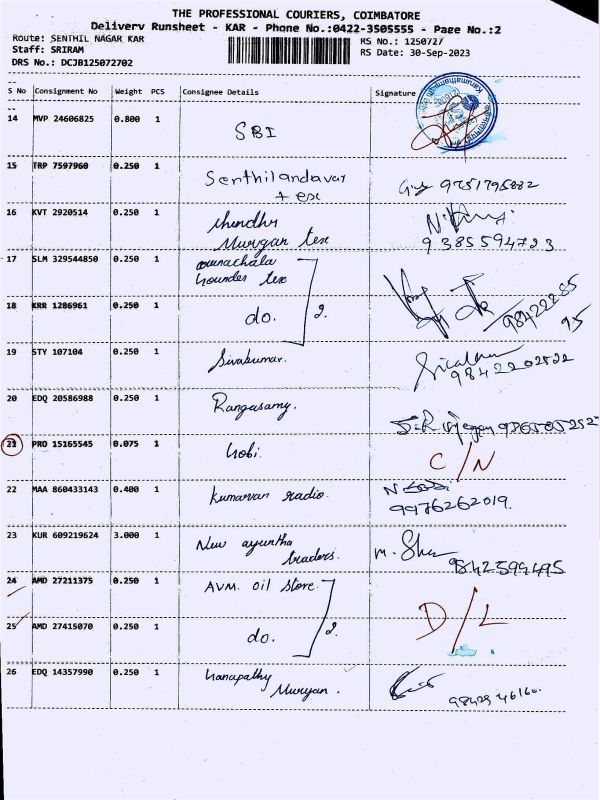 THE PROFESSIONAL COURIERS, COIMBATORE
Delivery Runsheet - KAR - Phone No.:0422-3505555 - Page No.:2
Route: SENTHIL NAGAR KAR
RS No.: 1250727
Staff: SRIRAM
RS Date: 30-Sep-2023
DRS No.: DCJB125072702
S No Consignment No Weight PCS Consignee Details Signature
14 MVP 24606825 0.800 1 SBI
15 TRP 7597960 0.250 1 Senthilandavar + ex 9751795882
16 KVT 2920514 0.250 1 Murugan tex 9385594723
17 SLM 329544850 0.250 1 Arunachala Gounder tex
18 KRR 1286961 0.250 1 do. 2. 98422285 95
19 STY 107104 0.250 1 Sivakumar. 9842202522
20 EDQ 20586988 0.250 1 Rangasamy.
21 PRO 15165545 0.075 1 Gobi. C/N
22 MAA 860433143 0.400 1 Kumaravan radio. 9976262019.
23 KUR 609219624 3.000 1 New ayuntha traders. 9842594495
24 AMD 27211375 0.250 1 AVM. oil store.
25 AMD 27415070 0.250 1 do. 2. D/L
26 EDQ 14357990 0.250 1 Ganapathy Murugan.